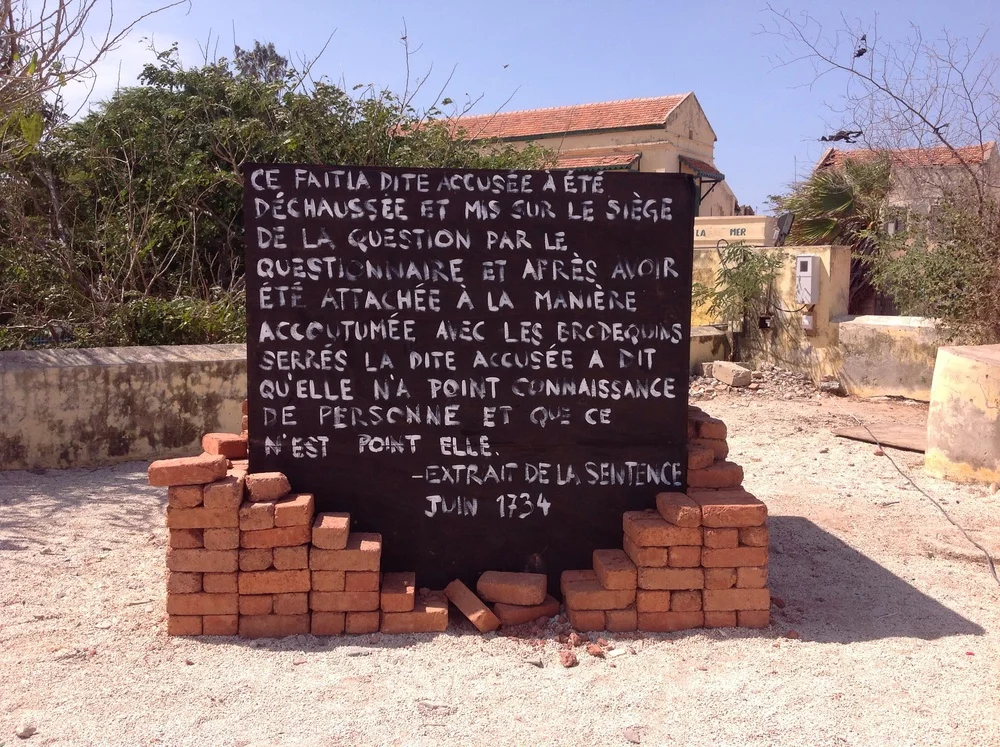 CE FAIT LA DITE ACCUSÉE À ÉTÉ
DÉCHAUSSÉE ET MIS SUR LE SIÈGE
DE LA QUESTION PAR LE
QUESTIONNAIRE ET APRÈS AVOIR
ÉTÉ ATTACHÉE À LA MANIÈRE
ACCOUTUMÉE AVEC LES BRODEQUINS
SERRÉS LA DITE ACCUSÉE A DIT
QU'ELLE N'A POINT CONNAISSANCE
DE PERSONNE ET QUE CE
N'EST POINT ELLE.
-EXTRAIT DE LA SENTENCE
JUIN 1734
LA MER